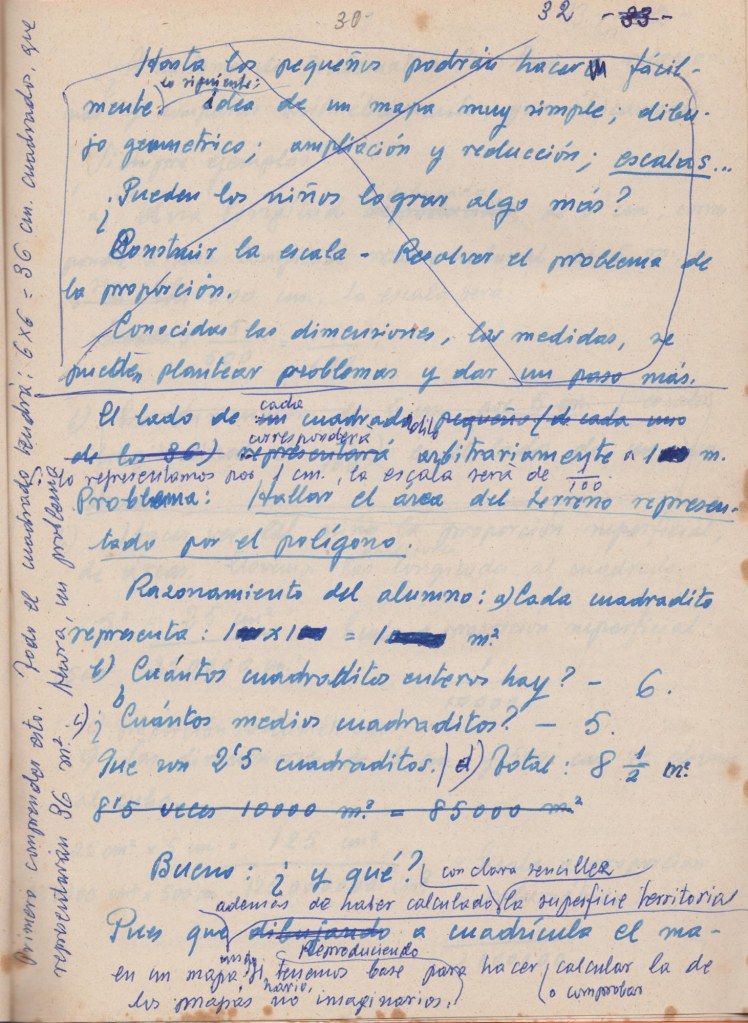 30
32 - 33 -
Hasta los pequeños podrán hacer un fácil-
lo siguiente:
mente idea de un mapa muy simple; dibu-
jo geometrico; ampliación y reducción; escalas...
¿Pueden los niños lograr algo más?
Construir la escala - Resolver el problema de
la proporción.
Conocidas las dimensiones, las medidas, se
pueden plantear problemas y dar un paso más.
cada
El lado de un cuadradito pequeño (de cada uno
correspondera
de los 36) representará arbitrariamente a 1 m.
lo representamos por 1 cm., la escala será de 1/100.
Problema: Hallar el area del terreno represen-
tado por el polígono.
Razonamiento del alumno: a) Cada cuadradito
representa: 1 x 1 = 1 m²
b) Cuántos cuadraditos enteros hay? - 6.
¿Cuántos medios cuadraditos? - 5.
Que son 2'5 cuadraditos. / d) Total: 8 1/2 m²
8'5 veces 10000 m² = 85000 m²
Bueno: ¿y qué? con clara sencillez
además de haber calculado la superficie territorial
Pues que dibujando a cuadrícula el ma-
Reproduciendo
en un mapa tenemos base para hacer calcular la de
los mapas no imaginarios. o comprobar
Primero comprender esto. Todo el cuadrado tendrá: 6 x 6 = 36 cm. cuadrados, que
representarán 36 m². Ahora, un problema